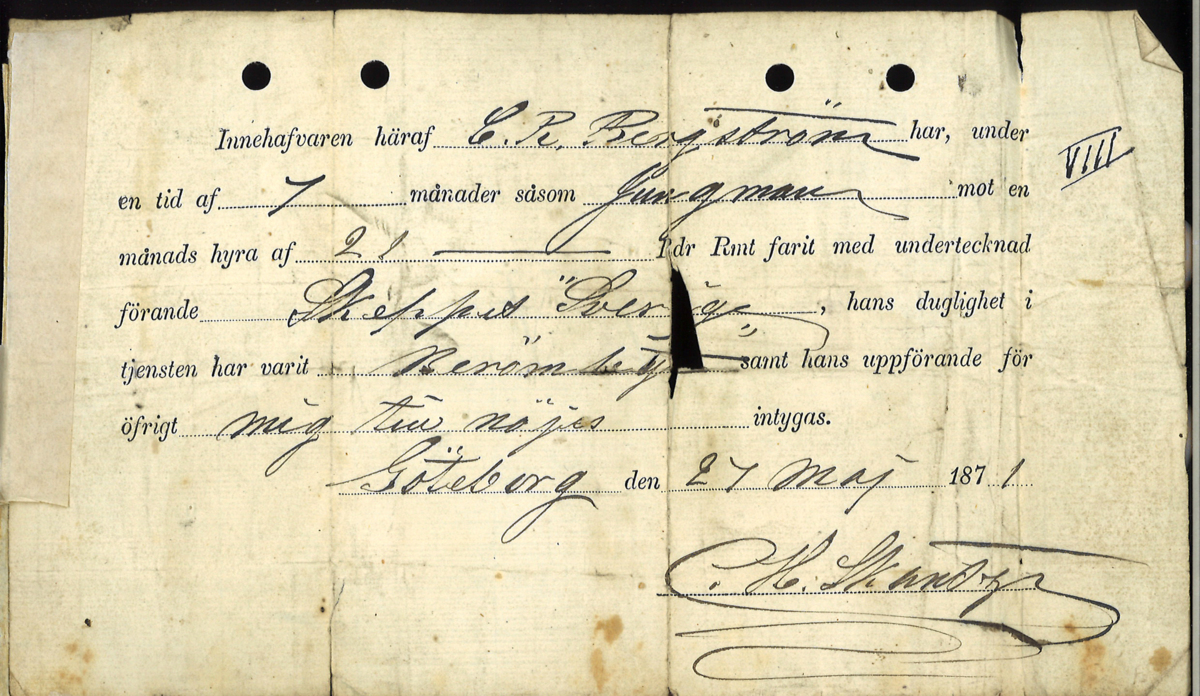 Innehafvaren häraf C. R. Bergström har, under
VIII
en tid af 7 månader såsom Jungman mot en
månads hyra af 21 — Rdr Rmt farit med undertecknad
förande Skeppet "Sverige", hans duglighet i
tjensten har varit Berömlig samt hans uppförande för
öfrigt mig till nöjes intygas.
Göteborg den 27 Maj 1871
C. H.